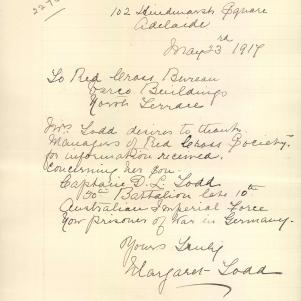 102 Hindmarsh Square
Adelaide
May 23rd 1917
To Red Cross Bureau
Verco Buildings
North Terrace
Mrs. Todd desires to thank
Managers of Red Cross Society
for information received
concerning her son
Captain D. L. Todd
50th Battalion late 10th
Australian Imperial Force
Now prisoner of War in Germany.
Yours Truly
Margaret Todd